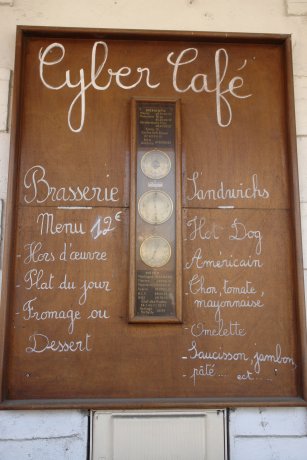 Cyber Café
Brasserie
Menu 12€
- Hors d'œuvre
- Plat du jour
- Fromage ou
Dessert
Sandwichs
- Hot Dog
- Americain
- Thon, tomate,
mayonnaise
- Omelette
- Saucisson, jambon,
- pâté ... ect......